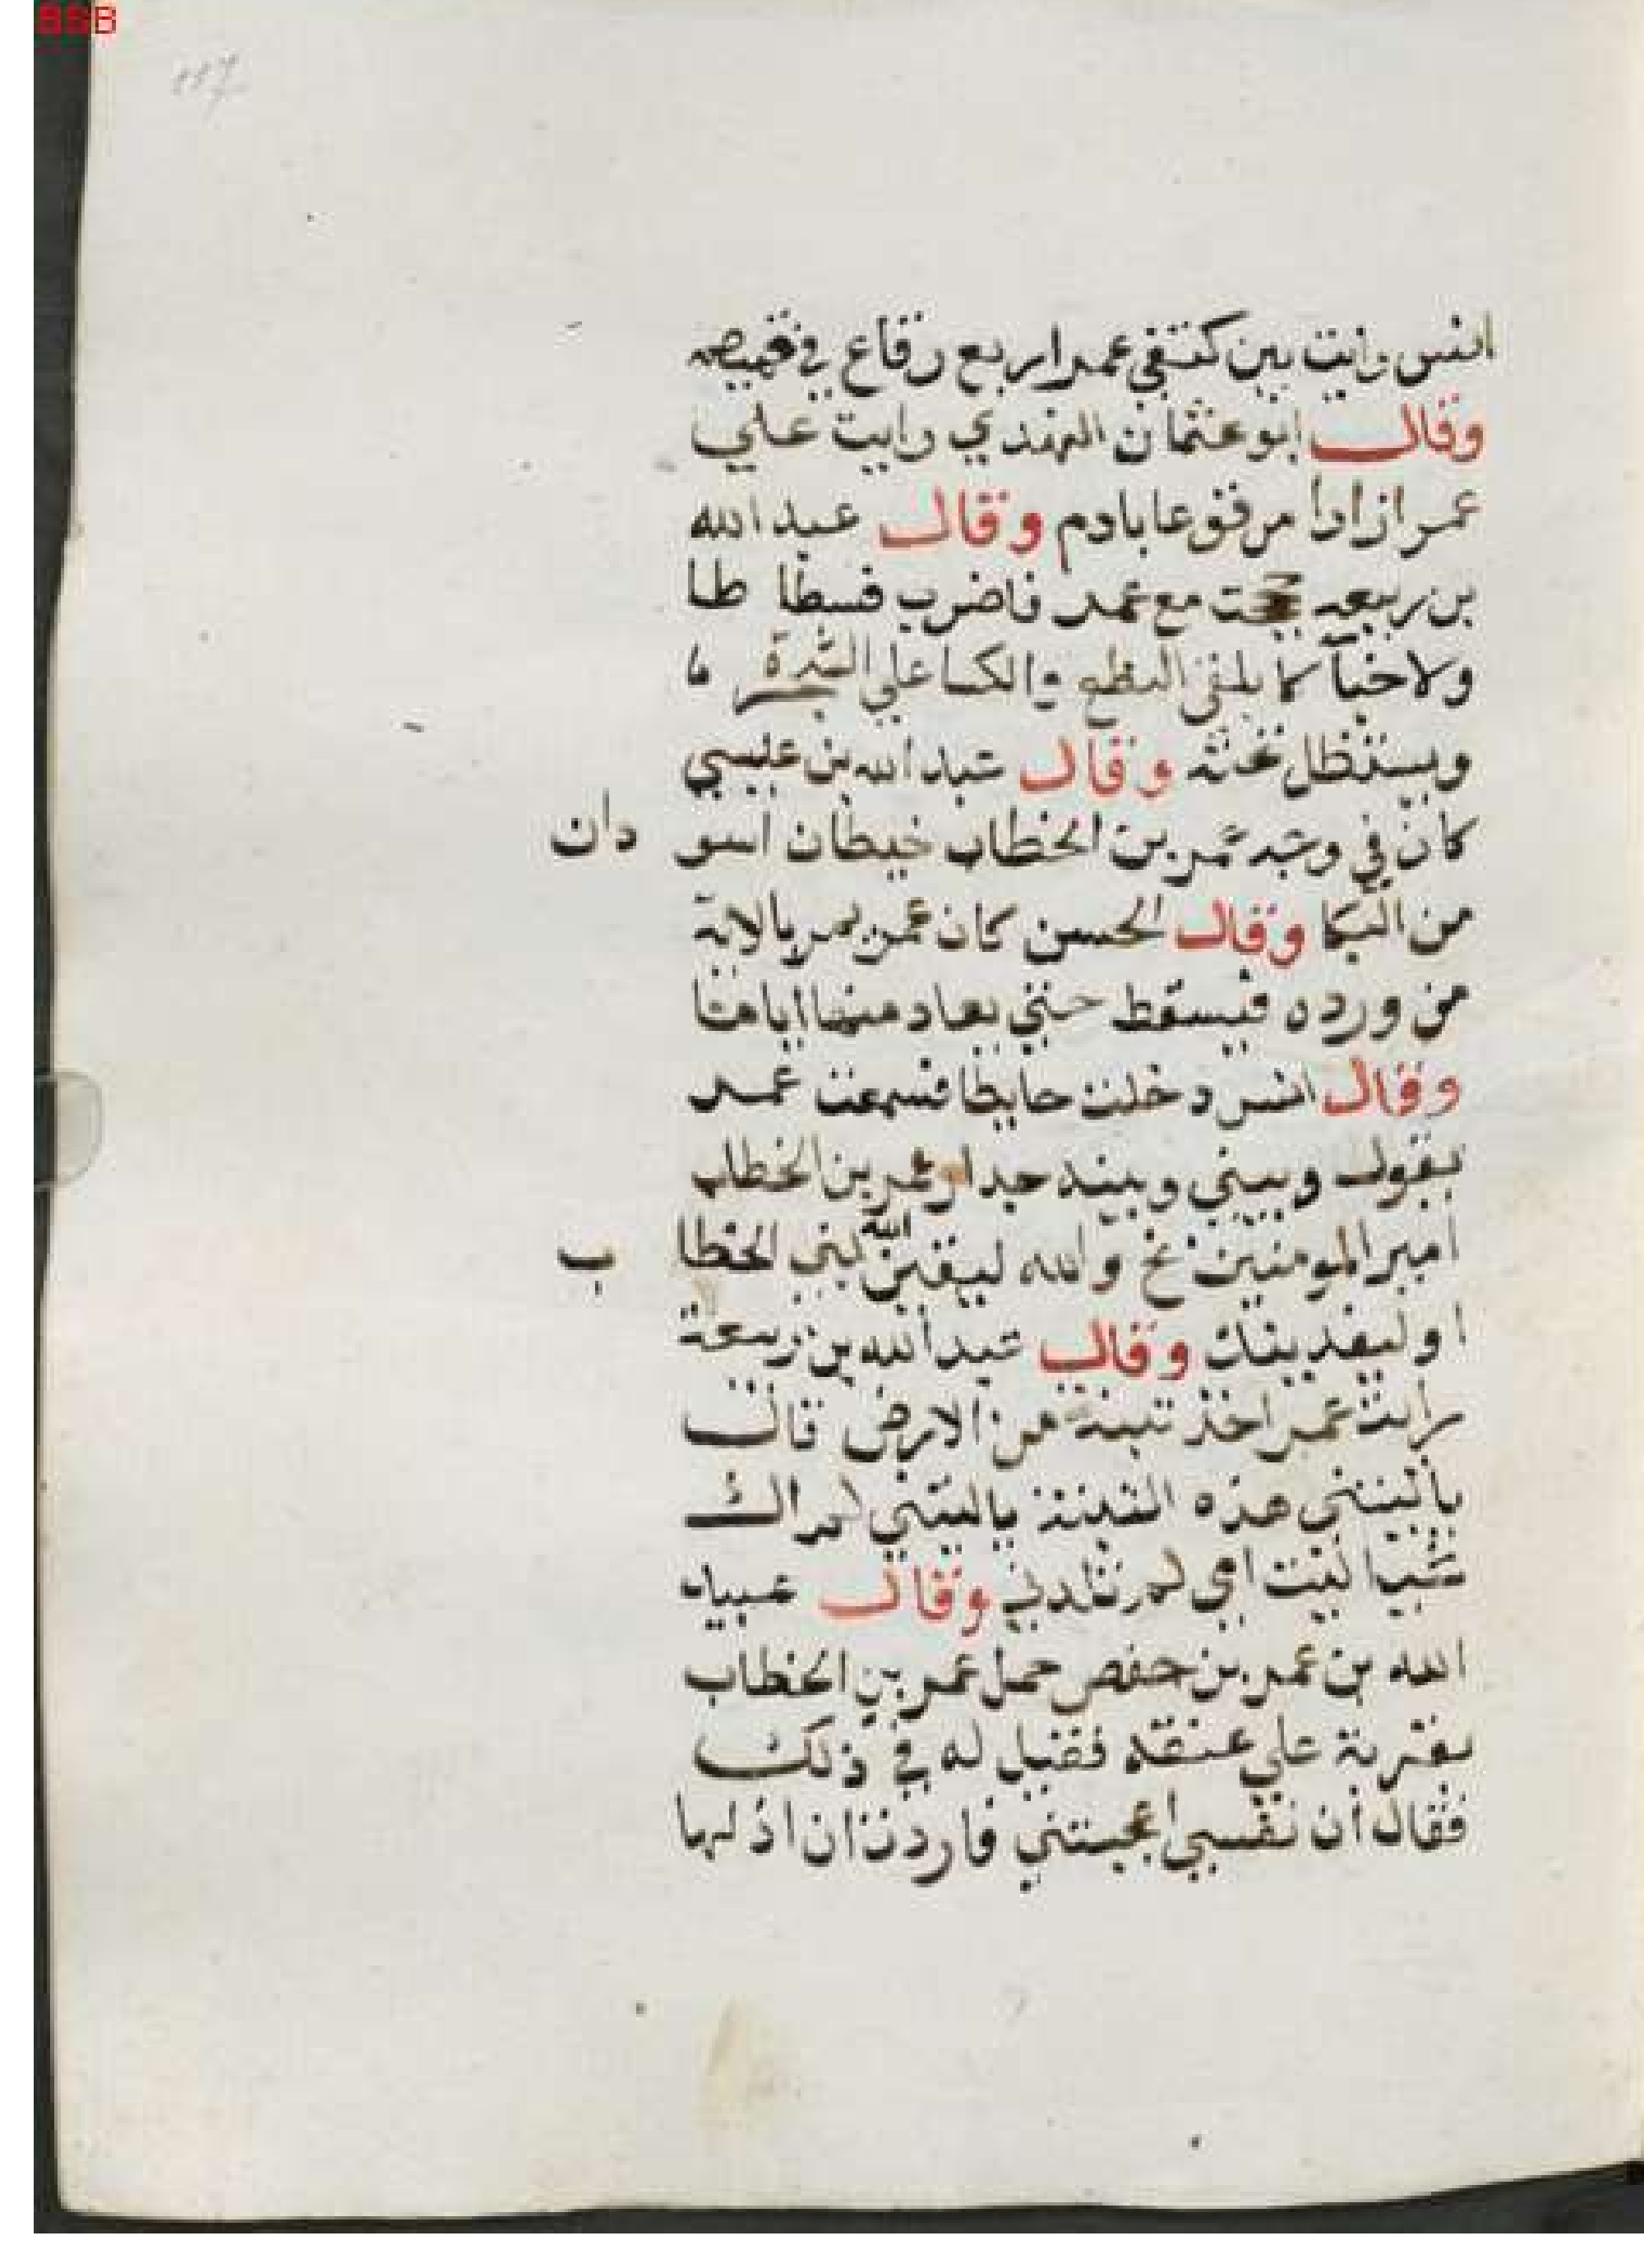 BSB
117
انس رايت بين كتفي عمر اربع رقاع في قميصه
وقال ابو عثمان النهدي رايت علي
عمر ازارا مرقوعا بادم وقال عبد الله
بن ربيعه حججت مع عمر فاضرب فسطاطا
ولا خبآ كان يلقي النطع والكسا علي الشجرة
ويستظل تحته وقال عبد الله بن عيسي
كان في وجه عمر بن الخطاب خيطان اسودان
من البكا وقال الحسن كان عمر يمر بالاية
من ورده فيسقط حتي يعاد منها اياما
وقال انس دخلت حايطا فسمعت عمر
يقول وبيني وبينه جدار عمر بن الخطاب
امير المومنين بخ والله ليتقين الله بني الخطاب
او ليعذبنك وقال عبد الله بن ربيعة
رايت عمر اخذ تبنة من الارض قال
ياليتني هذه التبنة ياليتني لم اك
شيا ليت امي لم تلدني وقال عبيد
الله بن عمر بن حفص حمل عمر بن الخطاب
بقربة علي عنقه فقيل له في ذلك
فقال ان نفسي اعجبتني فاردت ان اذلها